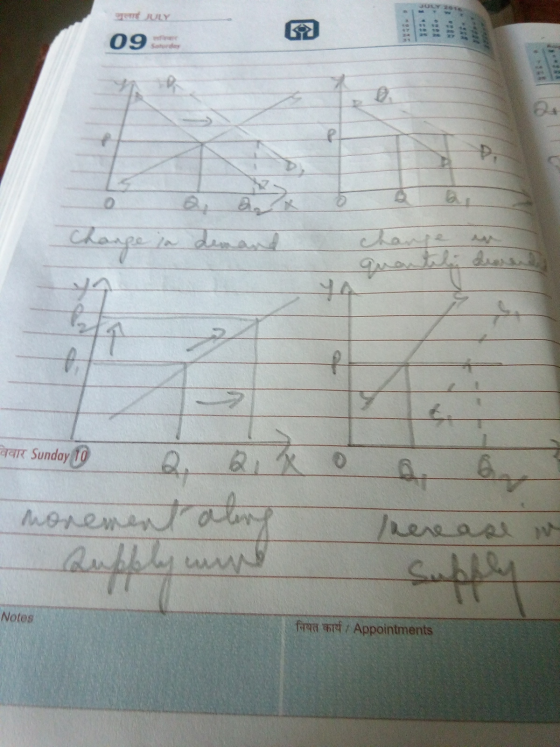 जुलाई JULY
JULY 2016
09 शनिवार
Saturday
Y D1 Y D1
P P
D1 D1
O Q1 Q2 X O Q Q1
Change in demand
Change in
quantity demanded
Y Y S1
P2
P1 P
S1
O Q1 Q1 X O Q1 Q2
रविवार Sunday 10
movement along
supply curve
Increase in
Supply
Notes
नियत कार्य / Appointments